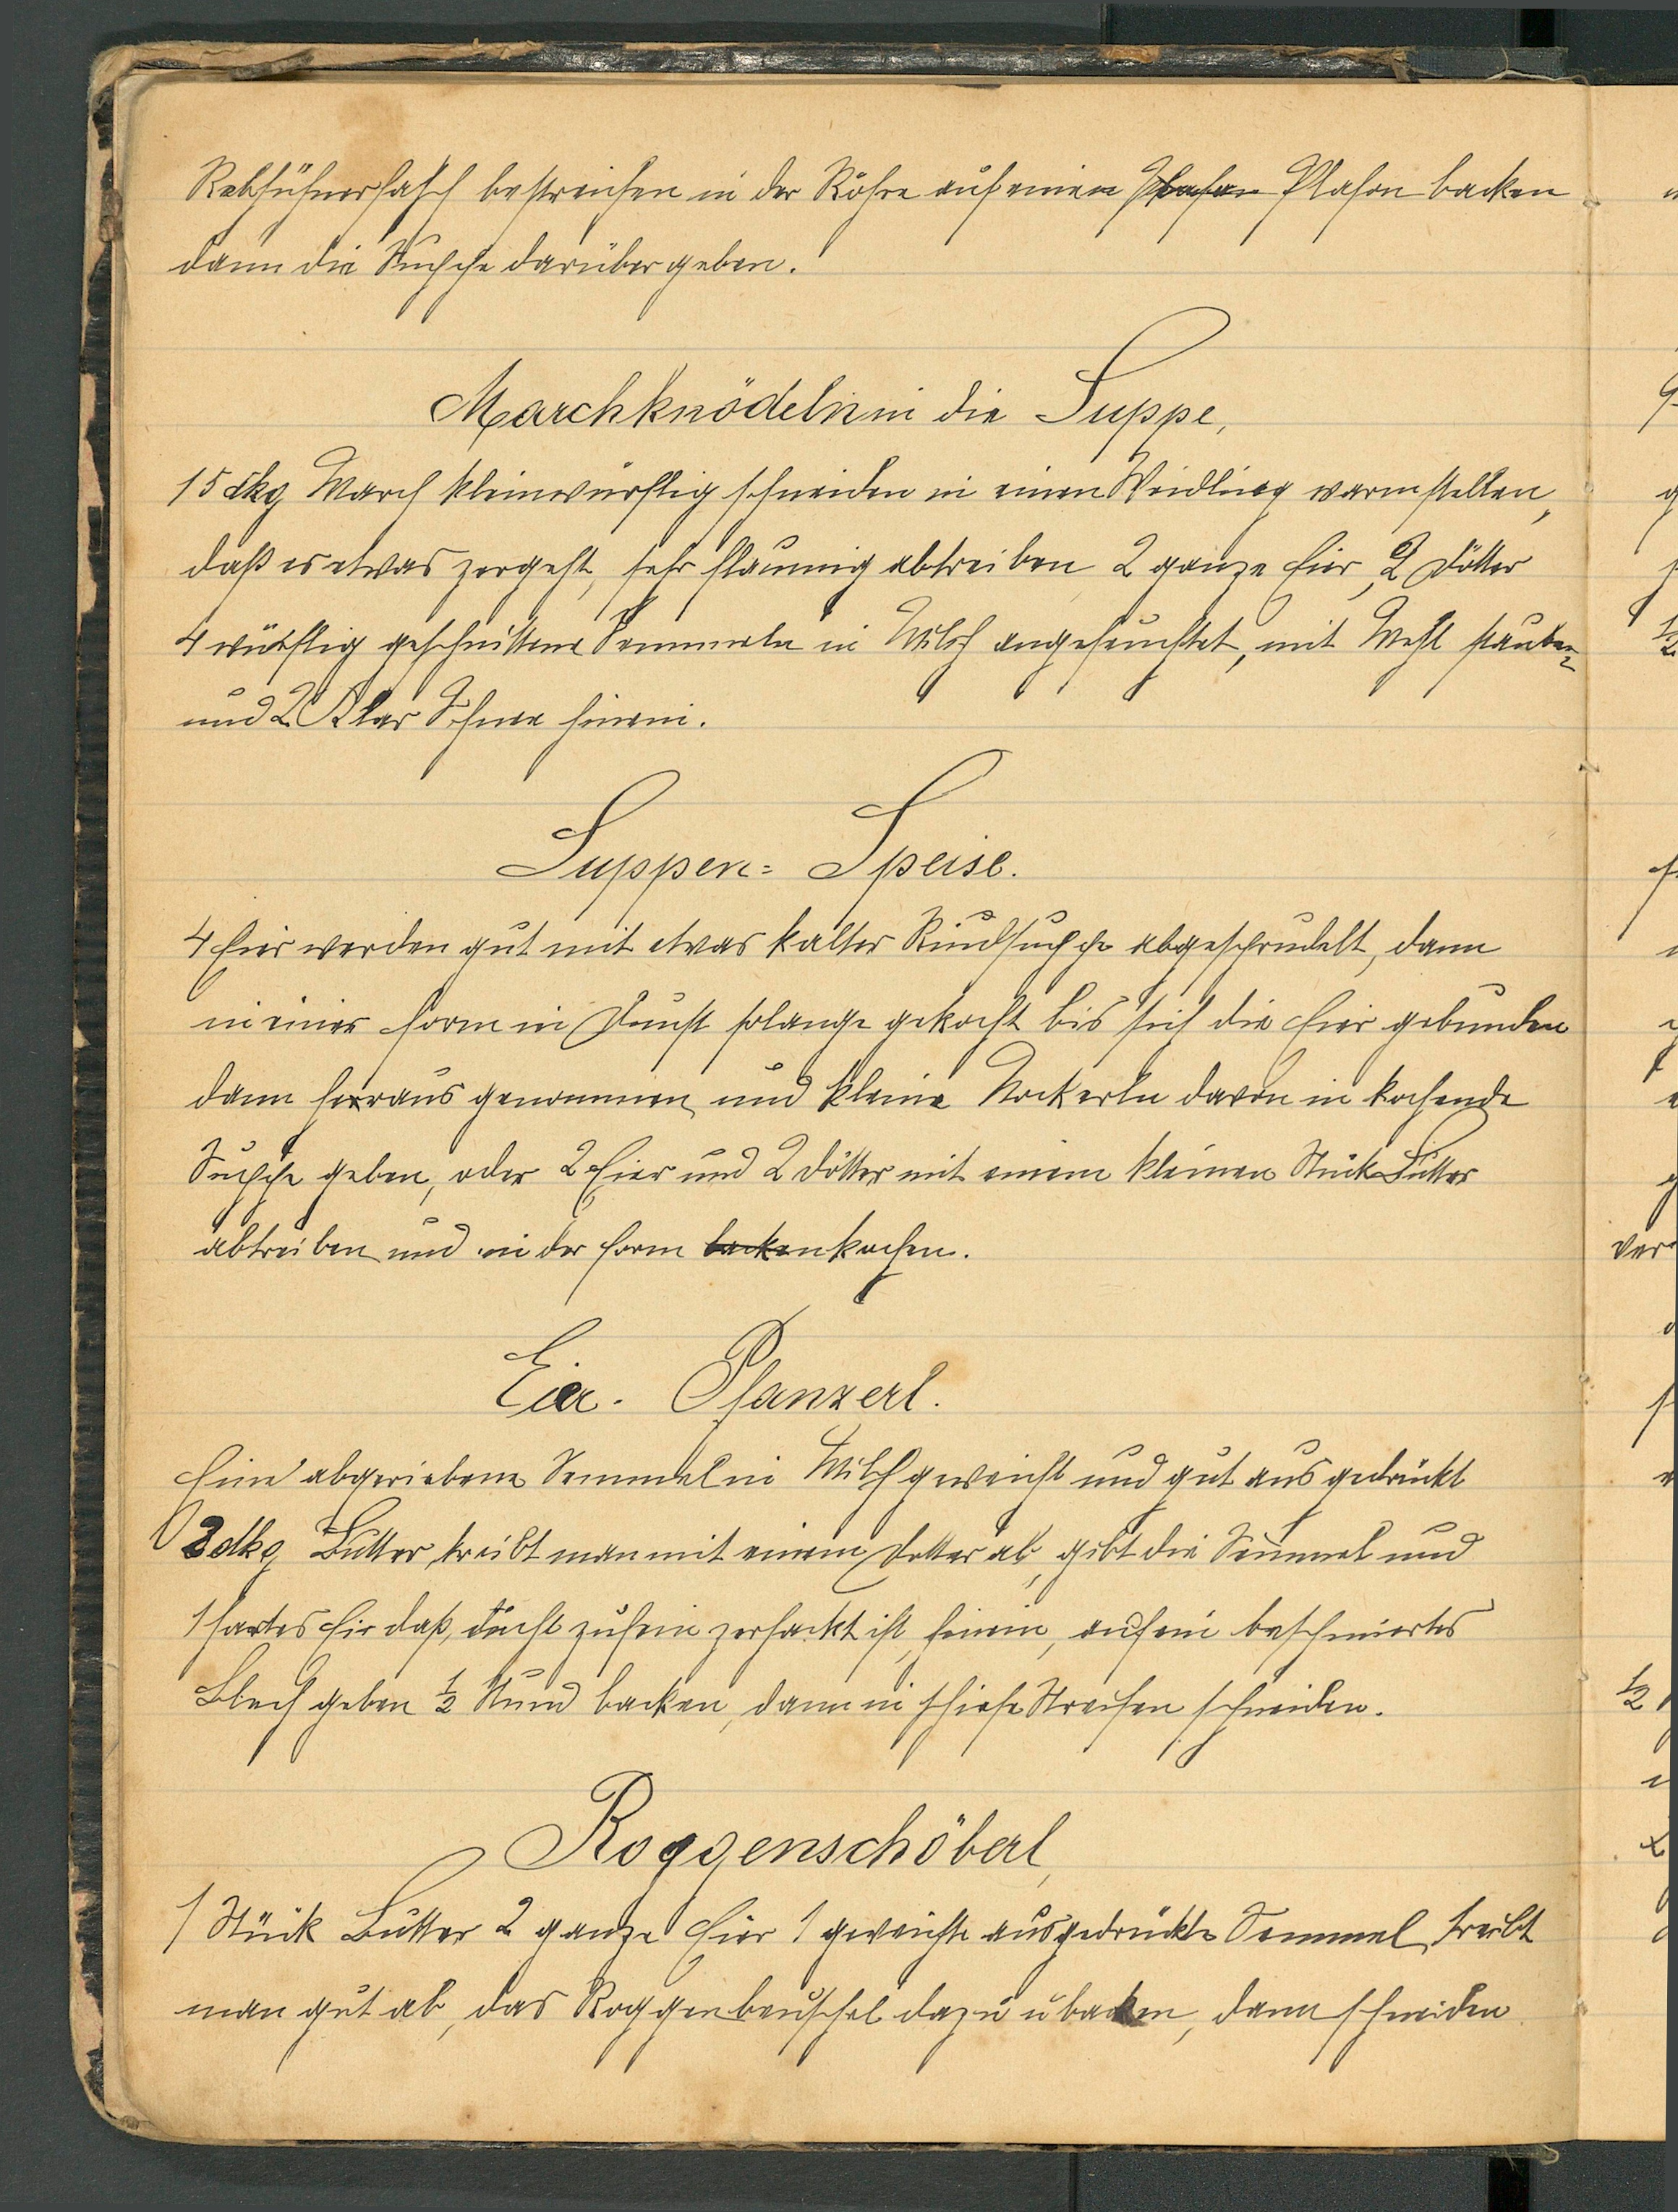 Rebhühnerfasch bestreichen in der Röhre auf einen Plafon backen
dann die Suppe darüber geben.
Marchknödeln in die Suppe,
15 dkg March kleinwürflig schneiden in einen Weidling warmstellen,
daß es etwas zergeht, sehr flaumig abtreiben 2 ganze Eier, 2 Dötter
4 würflig geschnittene Semmeln in Milch angefeuchtet, mit Mehl stauben
und 2 Klar Schnee hinein.
Suppen= Speise.
4 Eier werden gut mit etwas kalter Rindsuppe abgesprudelt, dann
in einer Form in Dunst solange gekocht bis sich die Eier gebunden
dann heraus genommen und kleine Nockerln davon in kochende
Suppe geben, oder 2 Eier und 2 Dötter mit einem kleinen Stük Butter
abtreiben und in der Form backen kochen.
Eier. Pfanzerl.
Eine abgeriebene Semmel in Milch geweicht und gut ausgedrükt
3 dkg Butter, treibt man mit einem Dotter ab, gibt die Semmel und
1 hartes Ei daß, zufein zerhackt ist, hinein, auf ein beschmiertes
Blech geben ½ Stund backen, dann in schiefe Streifen schneiden.
Roggenschöberl,
1 Stük Butter 2 ganze Eier 1 geweichte ausgedrükte Semmel, treibt
man gut ab, das Roggenbeuschel dazu u backen, dann schneiden